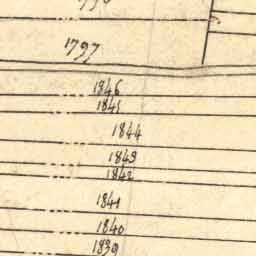 1797
1846
1845
1844
1843
1842
1841
1840
1839